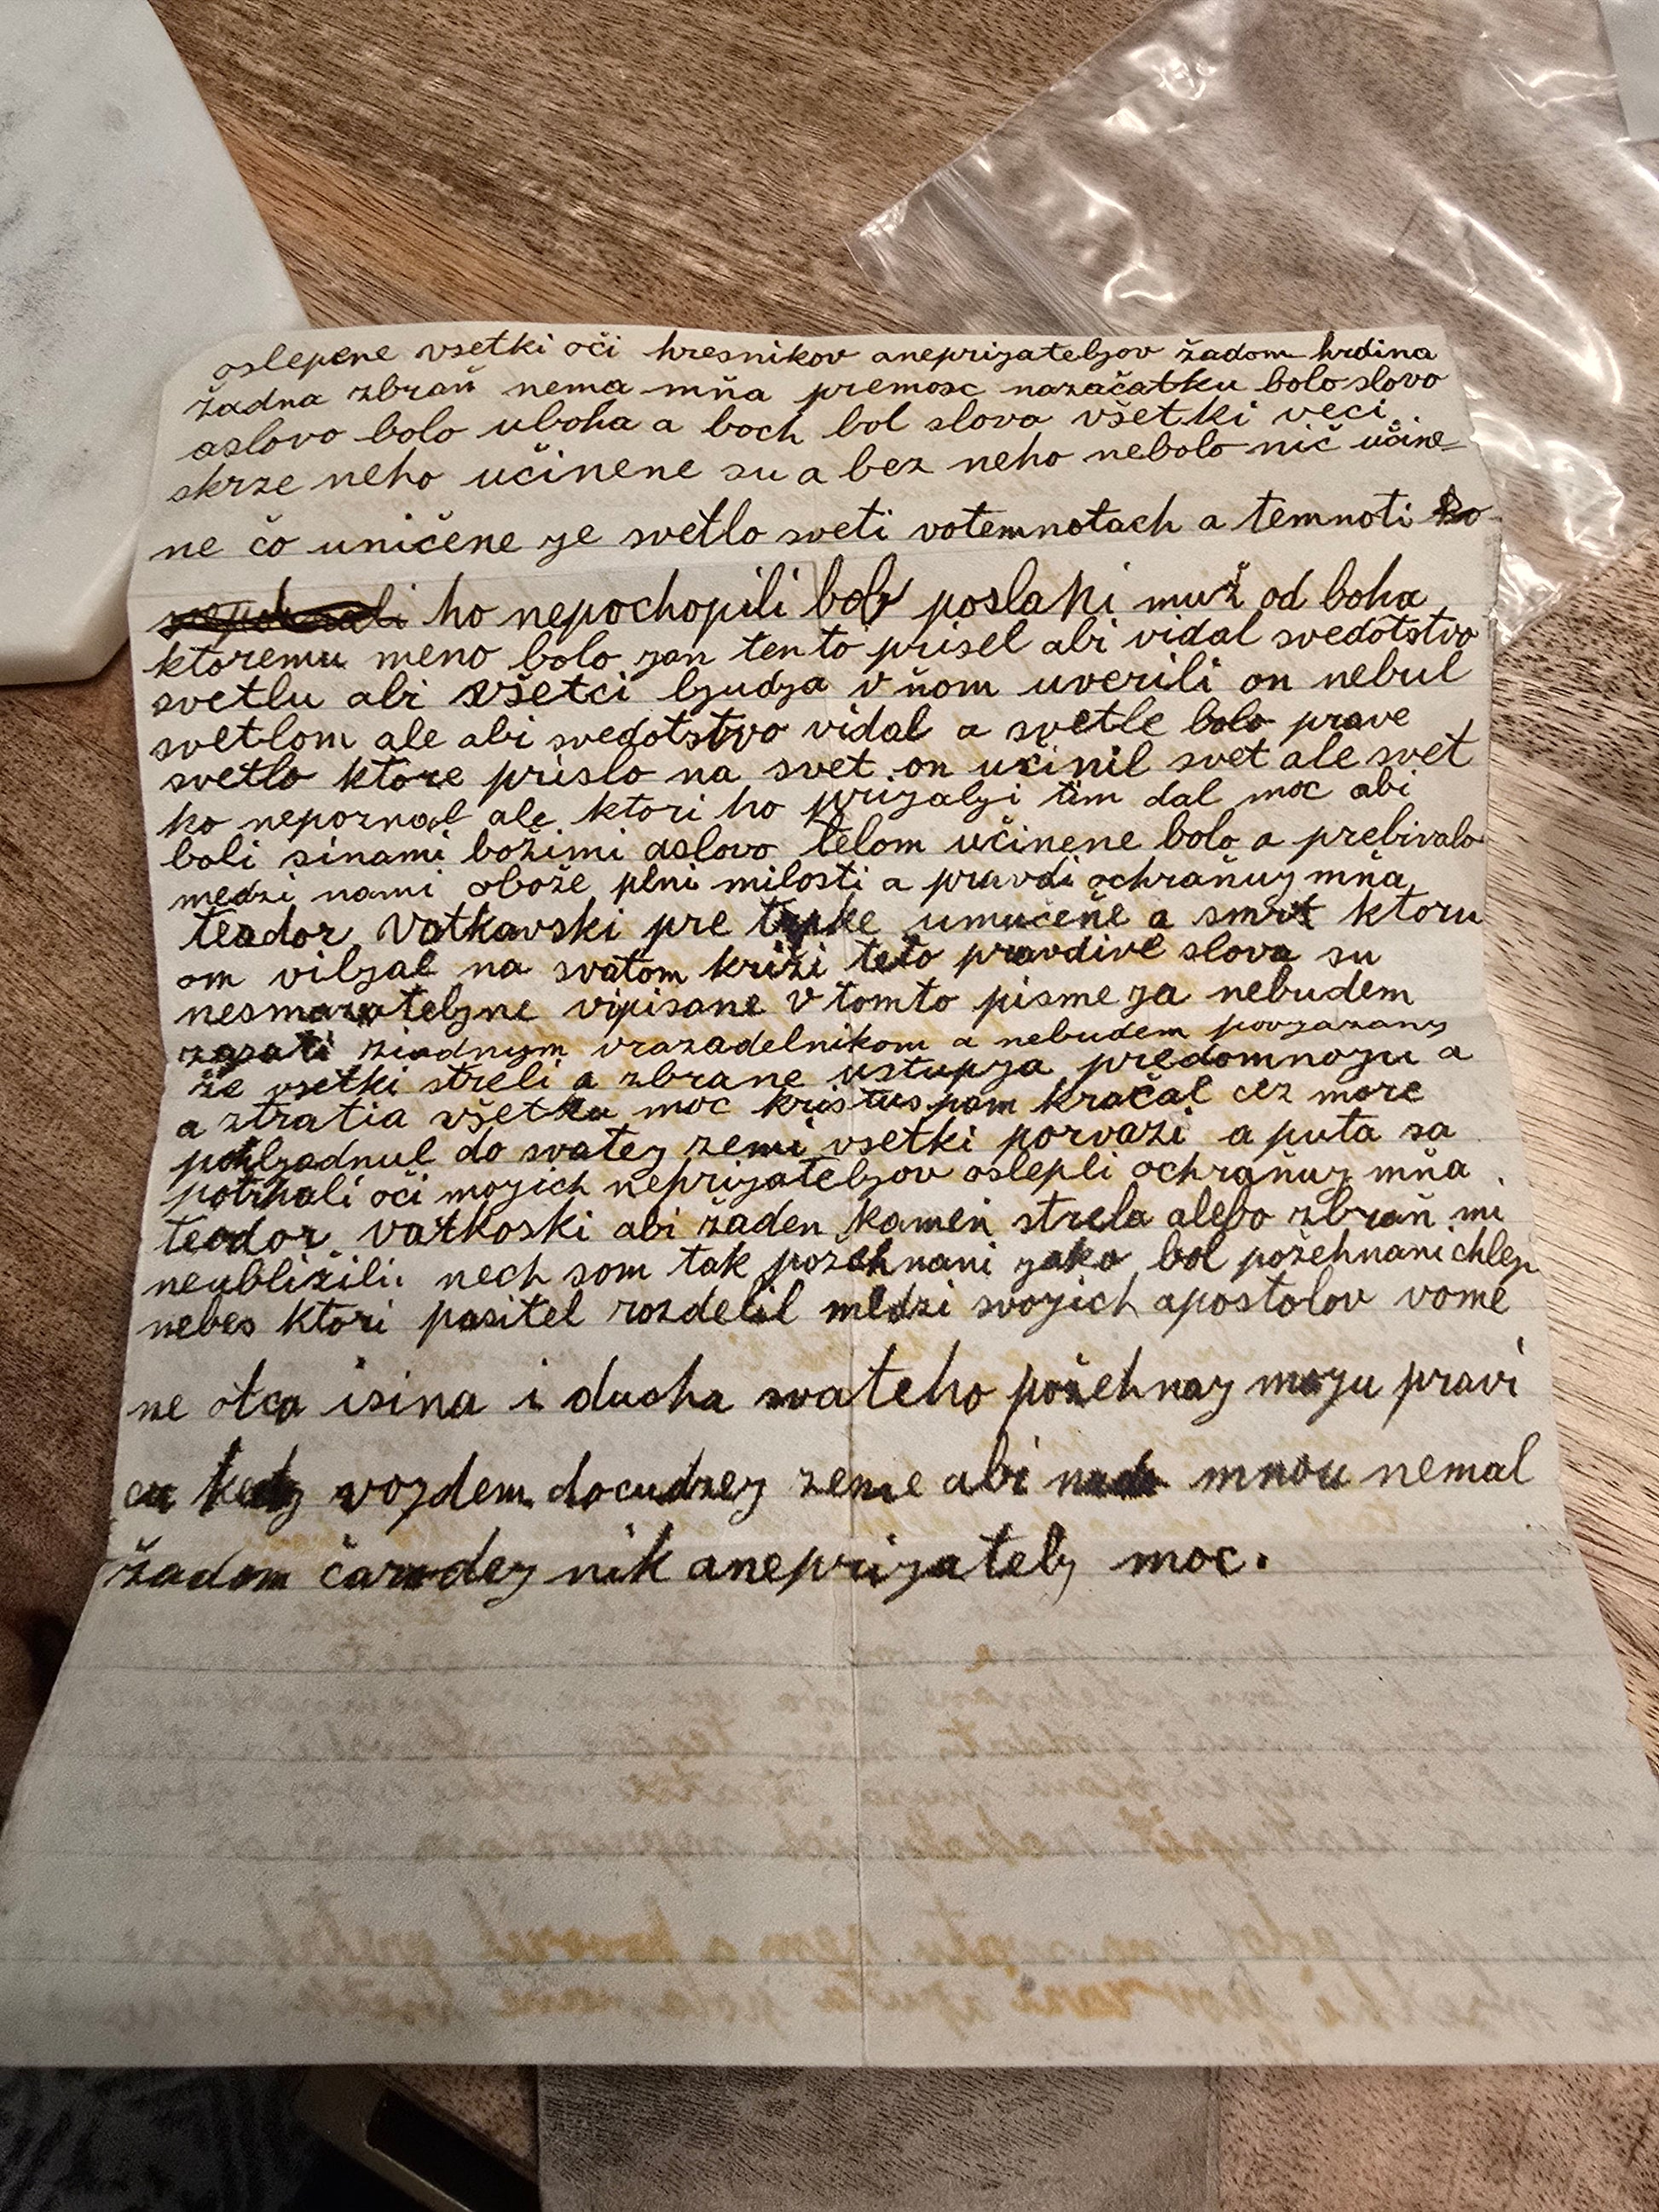 oslepene vsetki oči hresnikov aneprizateljov žadom hrdina
žadna zbraň nema mňa premosc nazačatku bolo slovo
aslovo bolo uboha a boch bol slovo všetki veci
skrze neho učinene su a bez neho nebolo nič učine-
ne čo uničene ye svetlo sveti votemnotach a temnoti
ho nepochopili bol poslani muž od boha
ktoremu meno bolo yan tento prisel abi vidal svedotstvo
svetlu abi všetci ljudza v ňom uverili on nebul
svetlom ale abi svedotstvo vidal a svetle bolo prave
svetlo ktore prislo na svet on učinil svet ale svet
ho nepoznal ale ktori ho prizalyi tim dal moc abi
boli sinami božimi aslovo telom učinene bolo a prebivalo
medzi nami obože plni milosti a pravdi ochraňuy mňa
teador Vatkavski pre umučeňe a smrt ktoru
om vilzal na svatom križi teto pravdive slova su
nesmazateljne vipisane v tomto pisme ya nebudem
zazati žiadnym vrazadelnikom a nebudem povyazany
že vsetki streli a zbrane ustupya predomnoyu a
a ztratia všetku moc kristus pam kračal cez more
pohlyadnul do svatey zemi vsetki porvazi a puta sa
potrhali oči moyich neprizateljov oslepli ochraňuy mňa
teodor vatkoski abi žaden kameň strela alebo zbraň mi
neublizili nech som tak požehnani yako bol požehnani chlep
nebes ktori pasitel rozdelil medzi svoyich apostolov vome
ne otca isina i ducha svateho požehnay moyu pravi
cu kedy voydem docudzey zeme abi nado mnou nemal
žadom čarodey nik aneprizately moc.